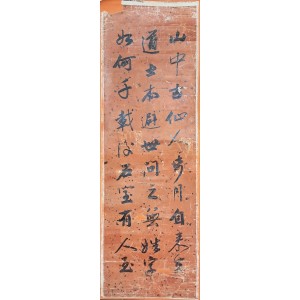 山中古仙人步月自來去
道士本避世問之無姓字
如何千載後石室有人至